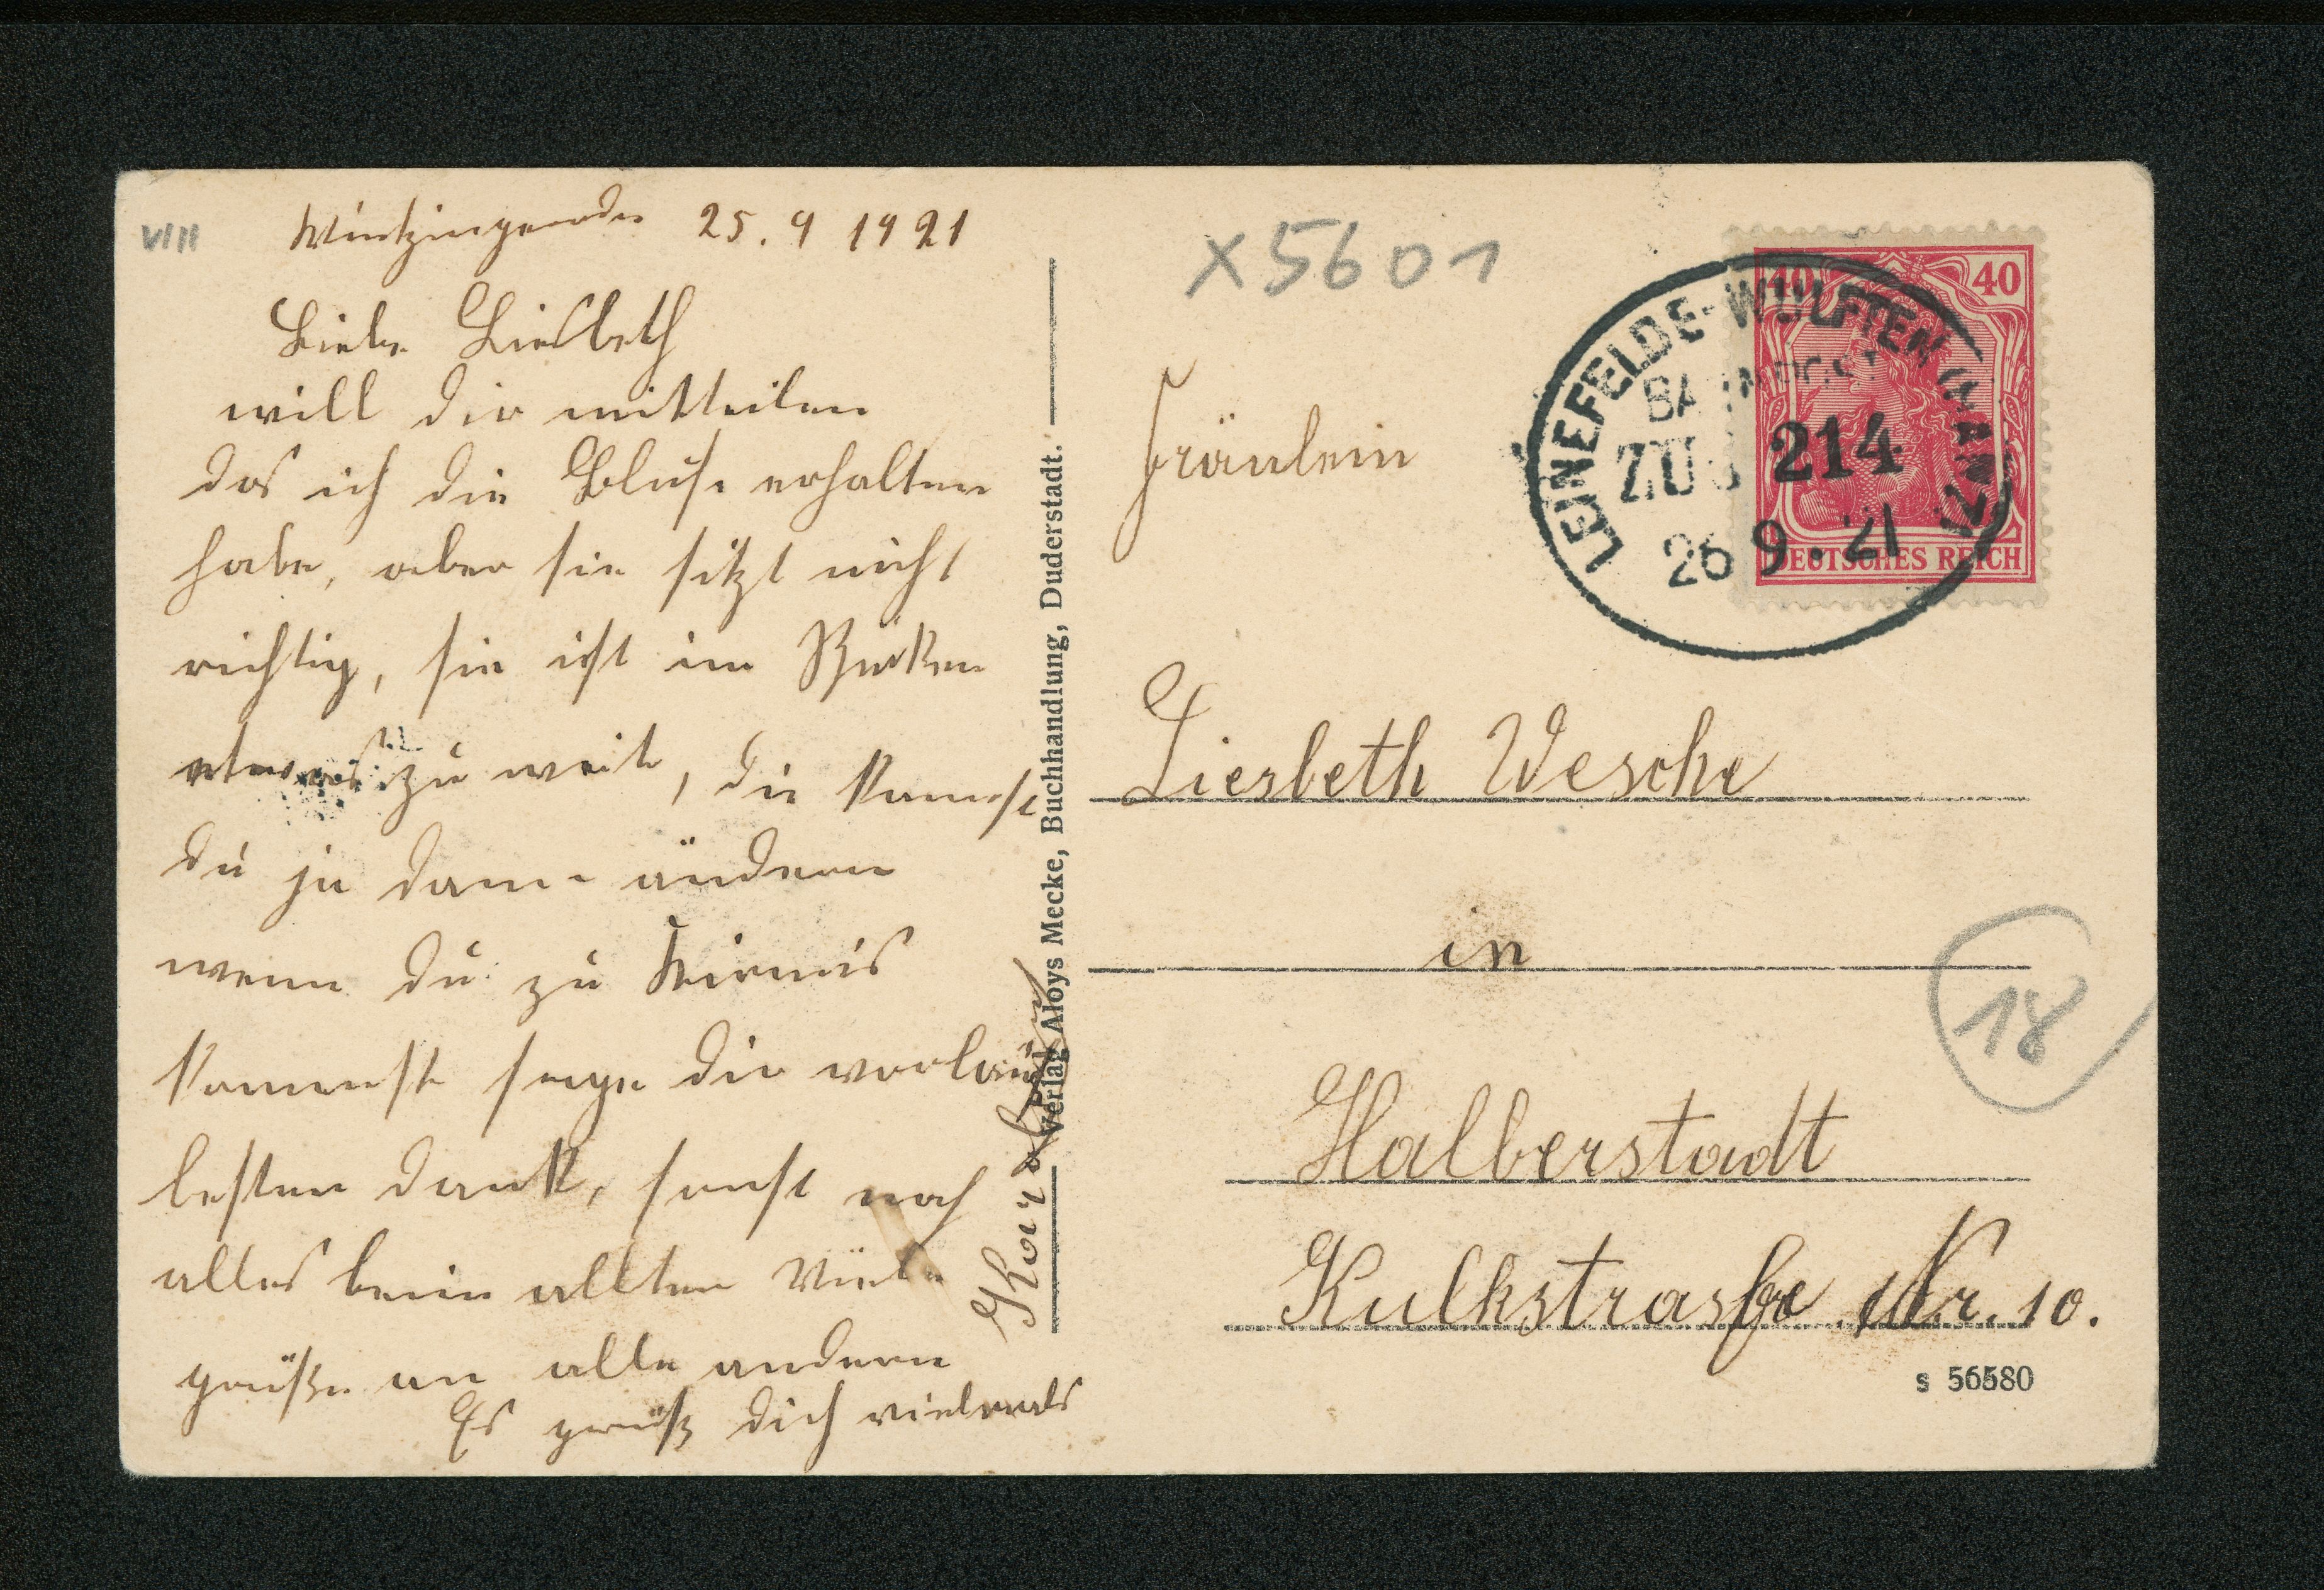 VIII
Wintzingerode 25.9 1921
Liebe Liesbeth
will dir mitteilen
das ich die Bluse erhalten
habe, aber sie sitzt nicht
richtig, sie ist im Rücken
etwas zu weit, die kannst
du ja dann ändern
wenn du zu Kirmis
kommst sage dir vorläuf
besten dank, sonst noch
alles beim allten Viele
grüße an alle andern
Es grüß dich vielmals
Verlag Aloys Mecke, Buchhandlung, Duderstadt.
x 5601
40 40
DEUTSCHES REICH
LEINEFELDE-WULFTEN (HARZ)
BAHNPOST
ZUG 214
26 9. 21
Fräulein
Liesbeth Wesche
in
Halberstadt
Kulkstrasße Nr. 10.
18
s 56580